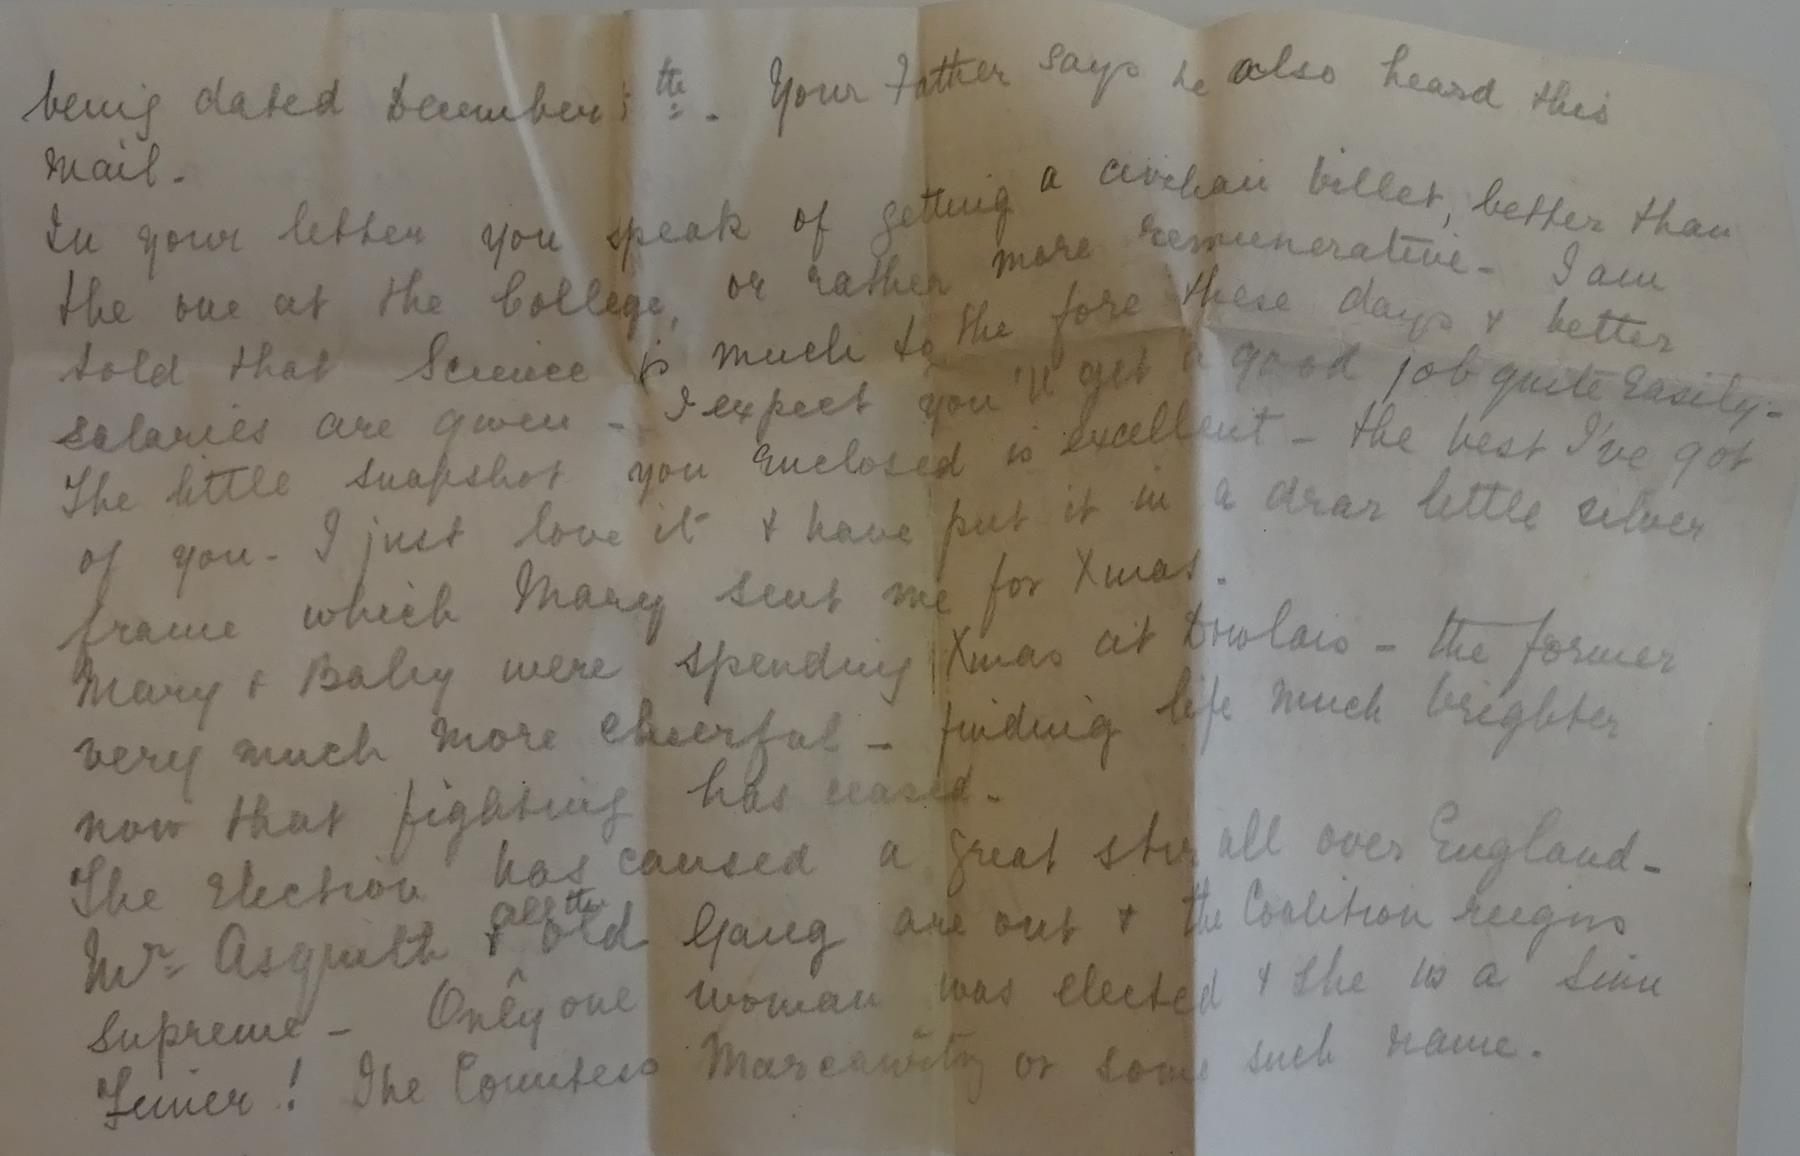 being dated December 5th. Your Father says he also heard this
mail.
In your letter you speak of getting a civilian billet, better than
the one at the College, or rather more remunerative - I am
told that Science is much to the fore these days & better
salaries are given - I expect you'll get a good job quite easily -
The little snapshot you enclosed is excellent - the best I've got
of you - I just love it & have put it in a dear little silver
frame which Mary sent me for Xmas.
Mary & Baby were spending Xmas at Dowlais - the former
very much more cheerful - finding life much brighter
now that fighting has ceased -
The Election has caused a great stir all over England -
Mr Asquith & all the old Gang are out & the Coalition reigns
supreme - Only one woman was elected & she is a Sinn
Feiner! The Countess Marcowitz or some such name.